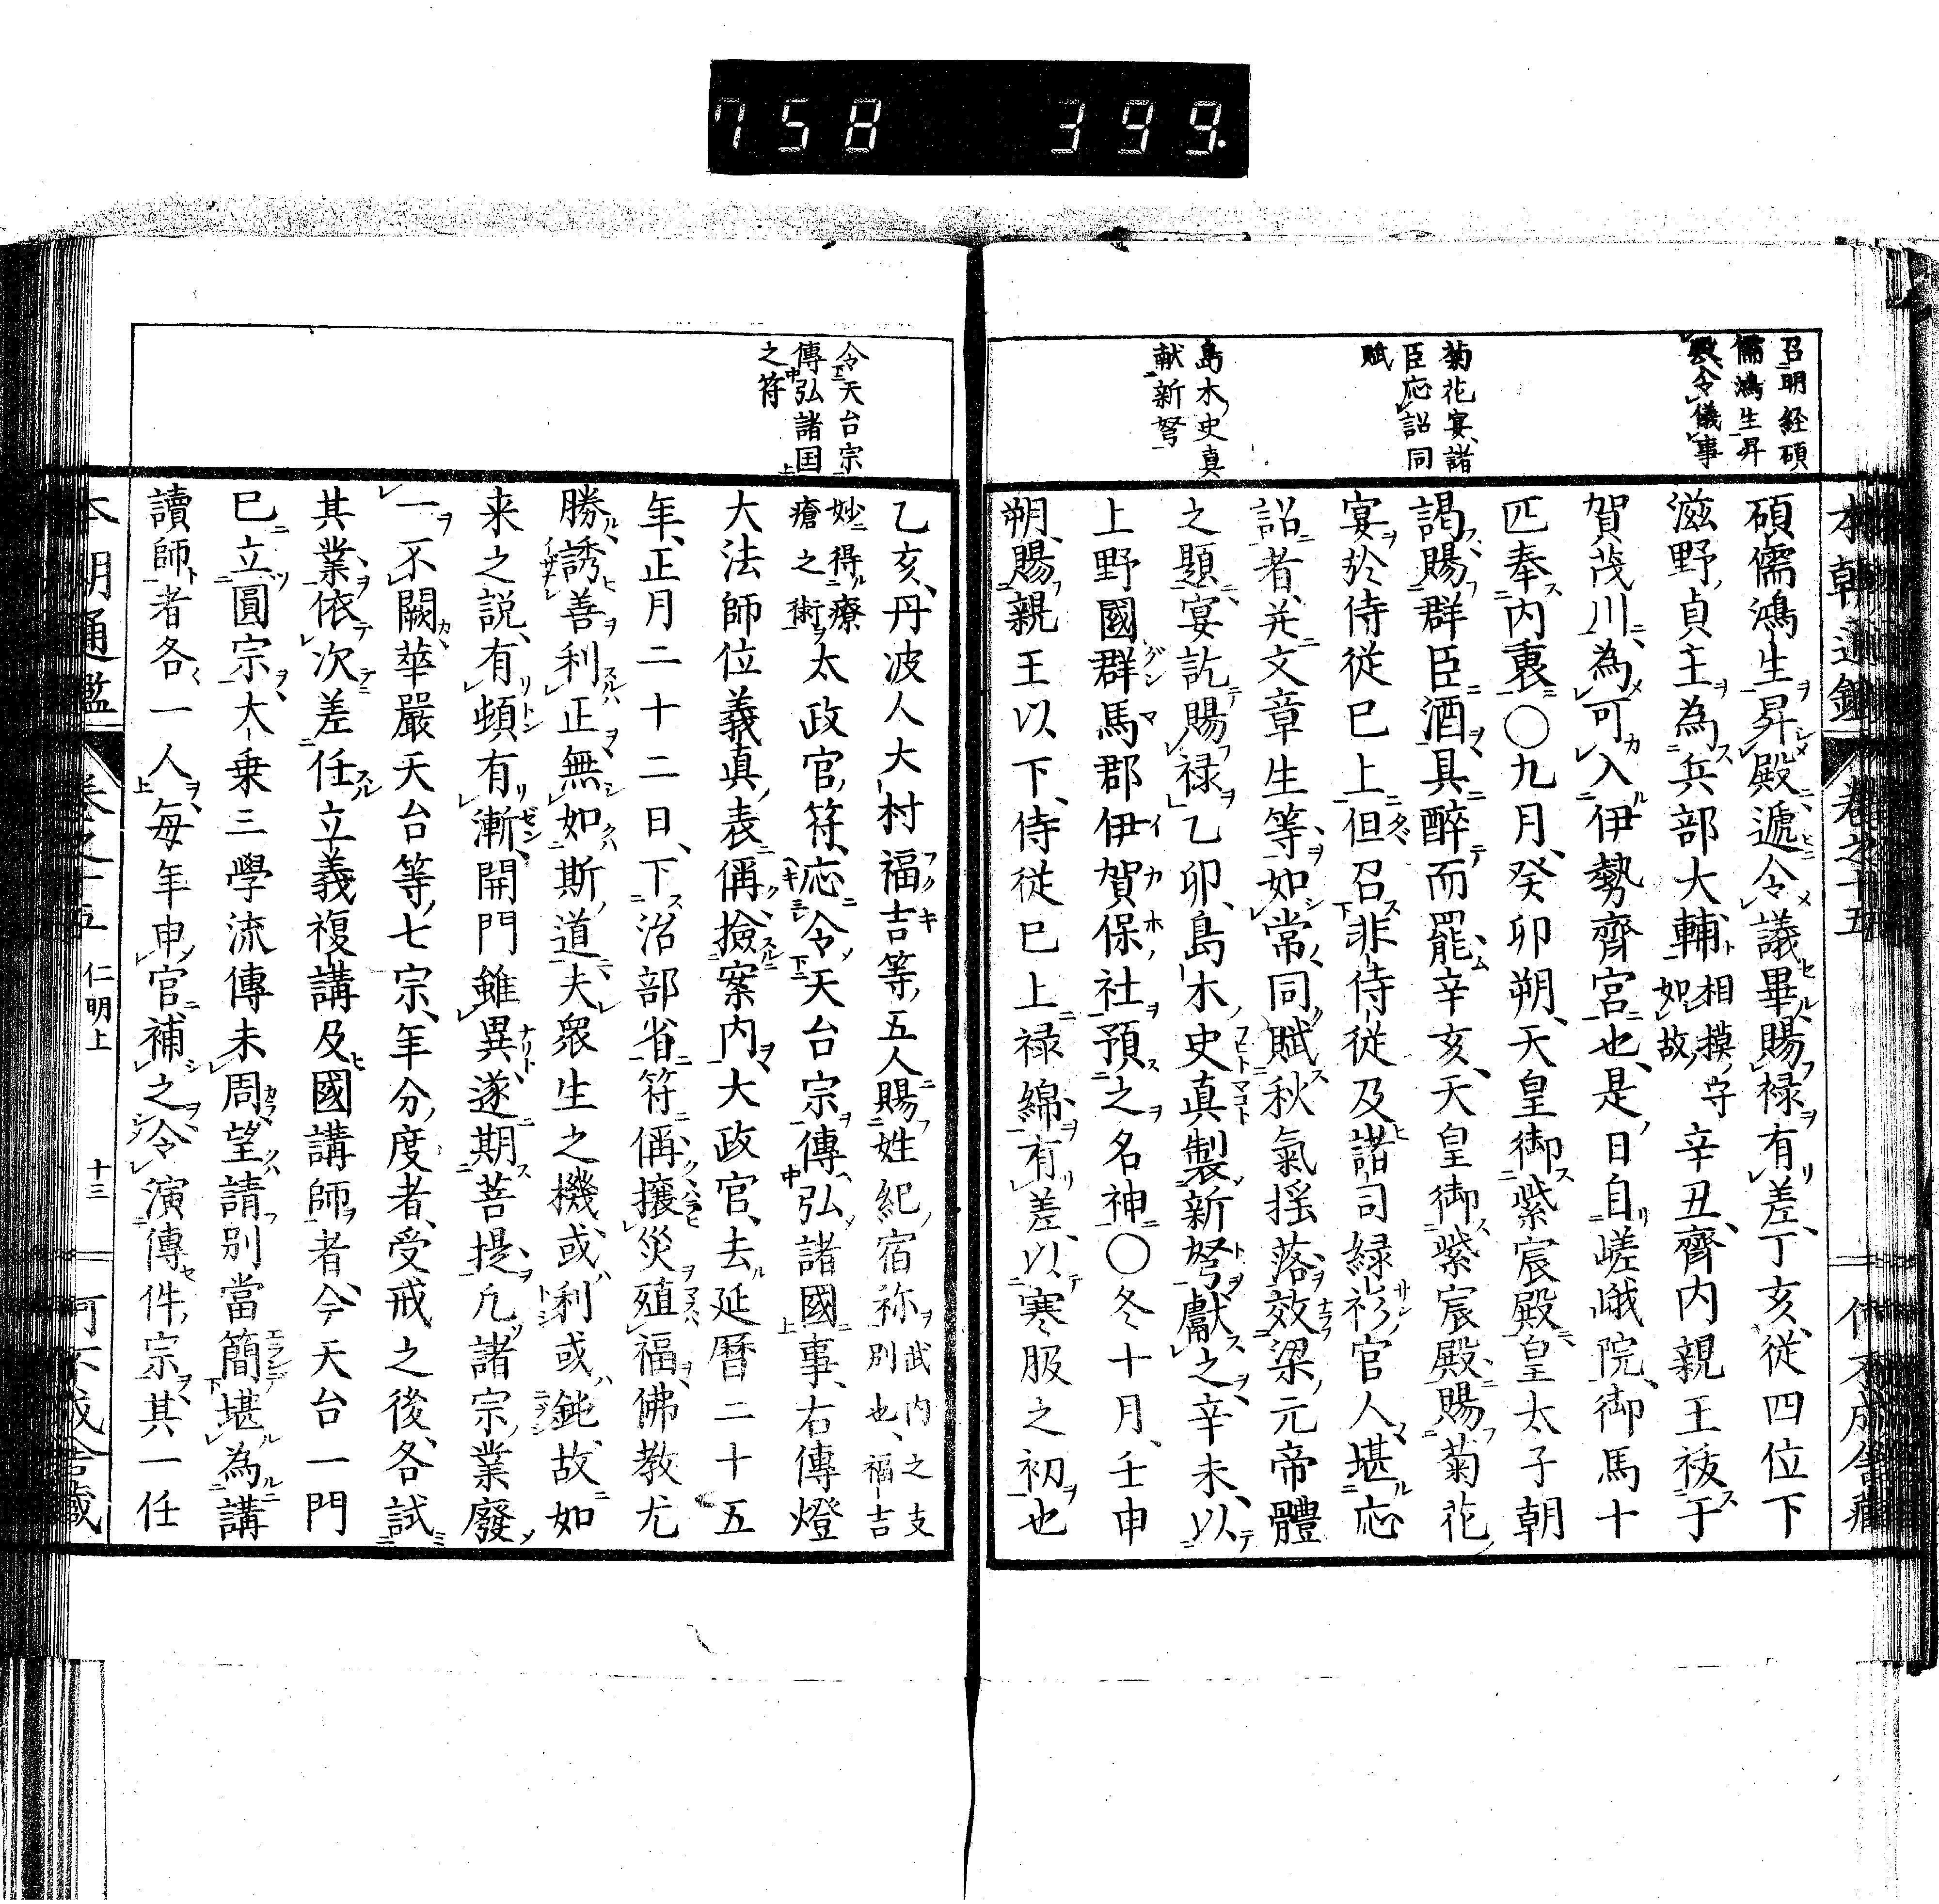 758 399.
本朝通鑑 卷之十五
召明経碩
儒鴻生昇
殿令儀事
菊花宴諸
臣応詔同
賦
島木史真
献新弩
碩儒鴻生昇殿遞令議畢賜禄有差丁亥從四位下
滋野貞主為兵部大輔相摸守如故辛丑齊内親王祓于
賀茂川為可入伊勢齊宮也是日自嵯峨院御馬十
匹奉内裏〇九月癸卯朔天皇御紫宸殿皇太子朝
謁賜群臣酒具醉而罷辛亥天皇御紫宸殿賜菊花
宴於侍從巳上但召非侍從及諸司緑衫官人堪応
詔者并文章生等如常同賦秋氣揺落效梁元帝體
之題宴訖賜禄乙卯島木史真製新弩獻之辛未以
上野國群馬郡伊賀保社預之名神〇冬十月壬申
朔賜親王以下侍従巳上禄綿有差以寒服之初也
令天台宗
傳弘諸国
之符
乙亥丹波人大村福吉等五人賜姓紀宿祢武内之支別也福吉
妙得療瘡之術太政官符応令天台宗傳弘諸國事右傳燈
大法師位義真表偁撿案内大政官去延暦二十五
年正月二十二日下治部省符偁攘災殖福佛教尤
勝誘善利正無如斯道夫衆生之機或利或鈍故如
来之説有頓有漸開門雖異遂期菩提凢諸宗業廢
一不闕華嚴天台等七宗年分度者受戒之後各試
其業依次差任立義複講及國講師者今天台一門
巳立圓宗大乗三學流傳未周望請別當簡堪為講
讀師者各一人毎年申官補之令演傳件宗其一任
本朝通鑑 卷之十五 仁明上 十三